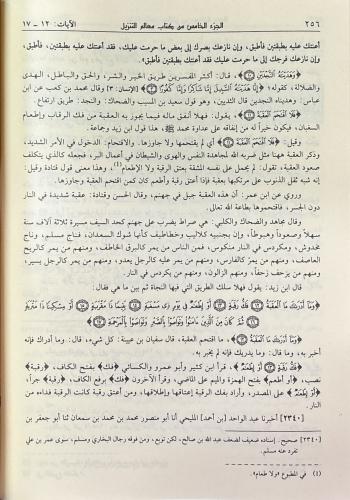 ٢٥٦ الجزء الخامس من كتاب معالم التنزيل الآيات: ١٢ - ١٧
أعنتك عليه بطبقتين فأطبق، وإن نازعك بصرك إلى بعض ما حرمت عليك، فقد أعنتك عليه بطبقتين
فأطبق، وإن نازعك فرجك إلى ما حرمت عليك فقد أعنتك عليه بطبقتين فأطبق».
﴿وَهَدَيْنَاهُ النَّجْدَيْنِ﴾، قال: أكثر المفسرين طريق الخير والشر، والحق والباطل، الهدى
والضلالة، كقوله: ﴿إِنَّا هَدَيْنَاهُ السَّبِيلَ إِمَّا شَاكِرًا وَإِمَّا كَفُورًا﴾ [الإنسان: ٣] وقال محمد بن كعب عن ابن
عباس: وهديناه النجدين قال الثديين، وهو قول سعيد بن المسيب والضحاك: والنجد: طريق ارتفاع.
﴿فَلَا اقْتَحَمَ الْعَقَبَةَ﴾، يقول: فهلا أنفق ماله فيما يجوز به العقبة من فك الرقاب وإطعام
السغبان، فيكون خيراً له من إنفاقه على عداوة محمد ﷺ، هذا قول ابن زيد وجماعة.
وقيل: ﴿فَلَا اقْتَحَمَ الْعَقَبَةَ﴾ أي لم يقتحمها ولا جاوزها. والاقتحام: الدخول في الأمر الشديد،
وذكر العقبة ههنا مثل ضربه الله لمجاهدة النفس والهوى والشيطان في أعمال البر، فجعله كالذي يتكلف
صعود العقبة، يقول: لم يحمل على نفسه المشقة بعتق الرقبة ولا الإطعام(١)، وهذا معنى قول قتادة وقيل:
إنه شبه ثقل الذنوب على مرتكبها بعقبة فإذا أعتق رقبة وأطعم كان كمن اقتحم العقبة وجاوزها.
وروي عن ابن عمر: أن هذه العقبة جبل في جهنم، وقال الحسن وقتادة: عقبة شديدة في النار
دون الجسر، فاقتحموها بطاعة الله تعالى.
وقال مجاهد والضحاك والكلبي: هي صراط يضرب على جهنم كحد السيف مسيرة ثلاثة آلاف سنة
سهلاً وصعوداً وهبوطاً، وإن بجنبتيه كلاليب وخطاطيف كأنها شوك السعدان، فناج مسلم، وناج
مخدوش، ومكردس في النار منكوس، فمن الناس من يمر كالبرق الخاطف، ومنهم من يمر كالريح
العاصف، ومنهم من يمر كالفارس، ومنهم من يمر عليه كالرجل يعدو، ومنهم من يمر كالرجل يسير،
ومنهم من يزحف زحفاً، ومنهم الزالون، ومنهم من يكردس في النار.
قال ابن زيد: يقول فهلا سلك الطريق التي فيها النجاة ثم بين ما هي فقال:
﴿وَمَا أَدْرَاكَ مَا الْعَقَبَةُ فَكُّ رَقَبَةٍ أَوْ إِطْعَامٌ فِي يَوْمٍ ذِي مَسْغَبَةٍ يَتِيمًا ذَا مَقْرَبَةٍ أَوْ مِسْكِينًا ذَا مَتْرَبَةٍ
ثُمَّ كَانَ مِنَ الَّذِينَ آمَنُوا وَتَوَاصَوْا بِالصَّبْرِ وَتَوَاصَوْا بِالْمَرْحَمَةِ﴾
﴿وَمَا أَدْرَاكَ مَا الْعَقَبَةُ﴾، ما اقتحم العقبة، قال سفيان بن عيينة: كل شيء، قال: وما أدراك فإنه
أخبر به، وما قال: وما يدريك فإنه لم يخبر به.
﴿فَكُّ رَقَبَةٍ أَوْ إِطْعَامٌ﴾، قرأ ابن كثير وأبو عمرو والكسائي ﴿فك﴾ بفتح الكاف، ﴿رقبة﴾
نصب، ﴿أو أطعم﴾ بفتح الهمزة والميم على الماضي، وقرأ الآخرون ﴿فك﴾ برفع الكاف، ﴿رقبة﴾ جراً،
﴿أو إطعام﴾ على المصدر، وأراد بفك الرقبة إعتاقها وإطلاقها، ومن أعتق رقبة كانت الرقبة فداءه من
النار.
[٢٣٤٠] أخبرنا عبد الواحد [بن أحمد] المليحي أنا أبو منصور محمد بن محمد بن سمعان ثنا أبو جعفر بن
[٢٣٤٠] صحيح. إسناده ضعيف لضعف عبد الله بن صالح، لكن توبع، ومن فوقه رجال البخاري ومسلم، سوى عمر بن علي
تفرد عنه مسلم.
(١) في المطبوع «ولا طعام».